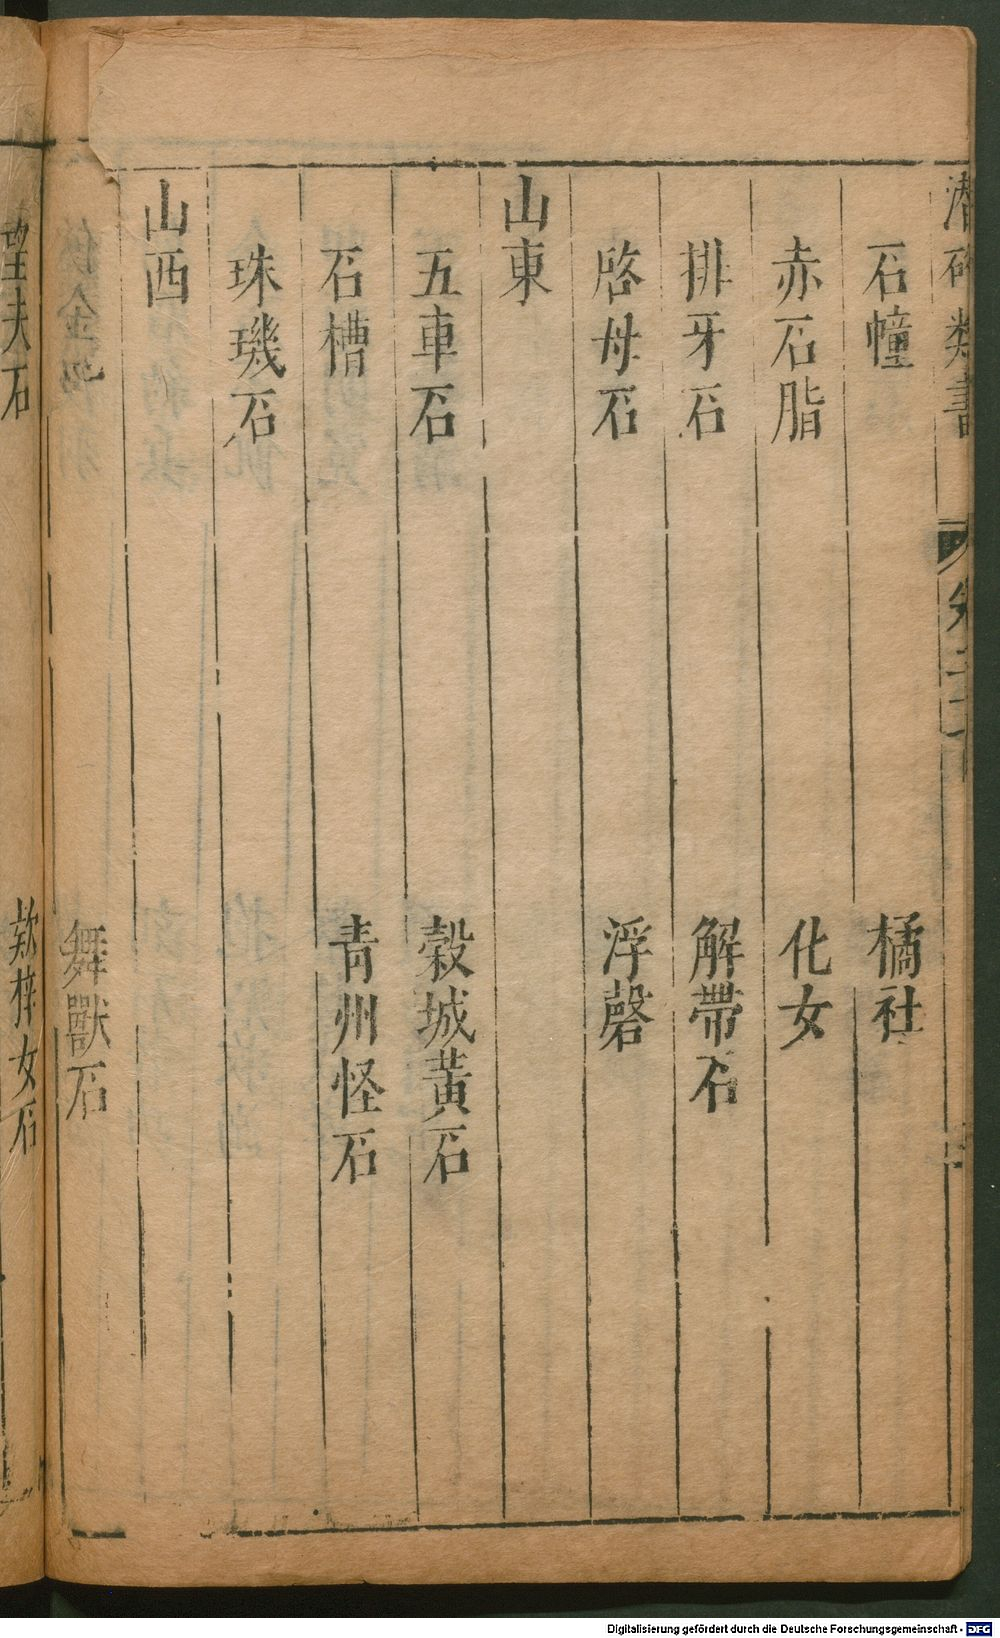 潛確類書
卷二十
石幢 橘社
赤石脂 化女
排牙石 解帶石
啓母石 浮磬
山東
五車石 穀城黃石
石槽 青州怪石
珠璣石
山西
舞獸石
望夫石 欵梓女石
Digitalisierung gefördert durch die Deutsche Forschungsgemeinschaft - DFG